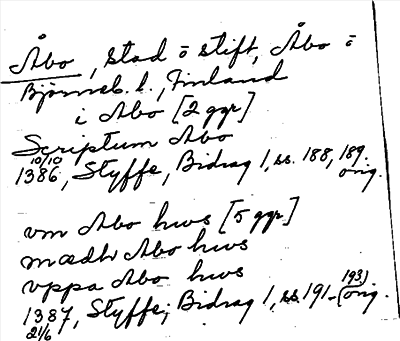 Åbo, stad o stift, Åbo o
Björneb. l., Finland
i Abo [2 ggr]
Scriptum Abo
10/10
1386, Styffe, Bidrag 1, ss. 188, 189.
orig.
vm Abo hws [5 ggr]
mædh Abo hws
vppa Abo hws
1387, Styffe, Bidrag 1, ss. 191-193)
(orig.
21/6